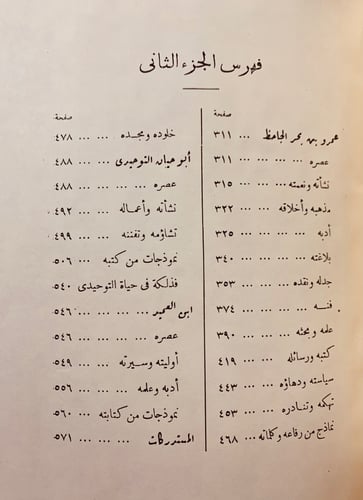 فهرس الجزء الثانى
صفحة
عمرو بن بحر الجاحظ ... ٣١١
عصره ... ... ... ... ٣١١
نشأته ونعمته ... ... ٣١٥
مذهبه وأخلاقه ... ... ٣٢٢
أدبه ... ... ... ... ٣٢٥
بلاغته ... ... ... ٣٤٠
جدله ونقده ... ... ... ٣٥٣
فنـــه ... ... ... ٣٧٤
علمه وبحثه ... ... ... ٣٩٠
كتبه ورسائله ... ... ٤١٩
سياسته ودهاؤه ... ... ٤٤٣
تهكمه وتنادره ... ... ٤٥٣
نماذج من رقاعه وكلماته ... ٤٦٨
صفحة
خلوده ومجــده ... ... ٤٧٨
أبو حيان التوحيدى ... ... ٤٨٨
عصره ... ... ... ... ٤٨٨
نشأته وأعمــاله ... ... ٤٩٢
تشاؤمه وتفننه ... ... ٤٩٩
نموذجات من كتبه ... ... ٥٠٦
فذلكة فى حياة التوحيدى ٥٤٠
ابن العميد ... ... ... ٥٤٦
عصره ... ... ... ... ٥٤٦
أوليته وسيرته ... ... ٥٤٩
أدبه وعلمه ... ... ... ٥٥٦
نموذجات من كتابته ... ٥٦٠
المستدركات ... ... ... ٥٧١